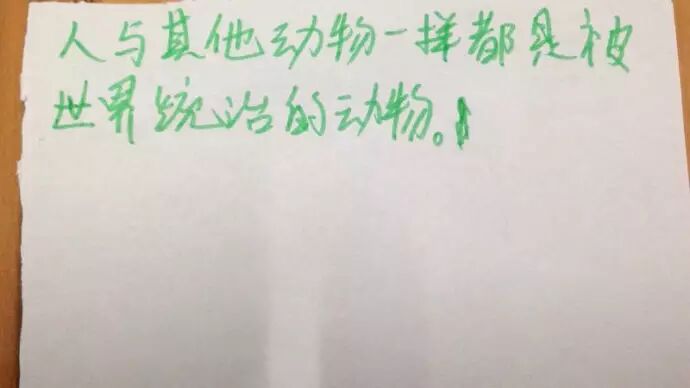 人与其他动物一样都是被
世界统治的动物。